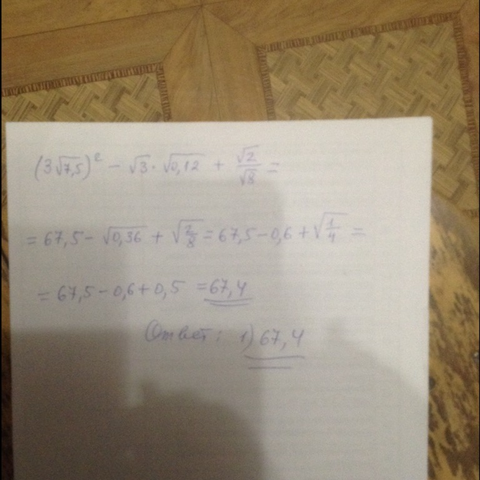 (3√7,5)² − √3 · √0,12 + √2/√8 =
= 67,5 − √0,36 + √(2/8) = 67,5 − 0,6 + √(1/4) =
= 67,5 − 0,6 + 0,5 = 67,4
Ответ: 1) 67,4